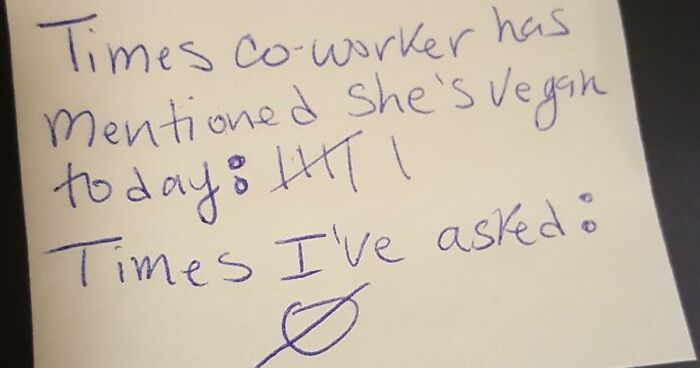 Times co-worker has
mentioned she's vegan
today: 卌 |
Times I've asked:
Ø